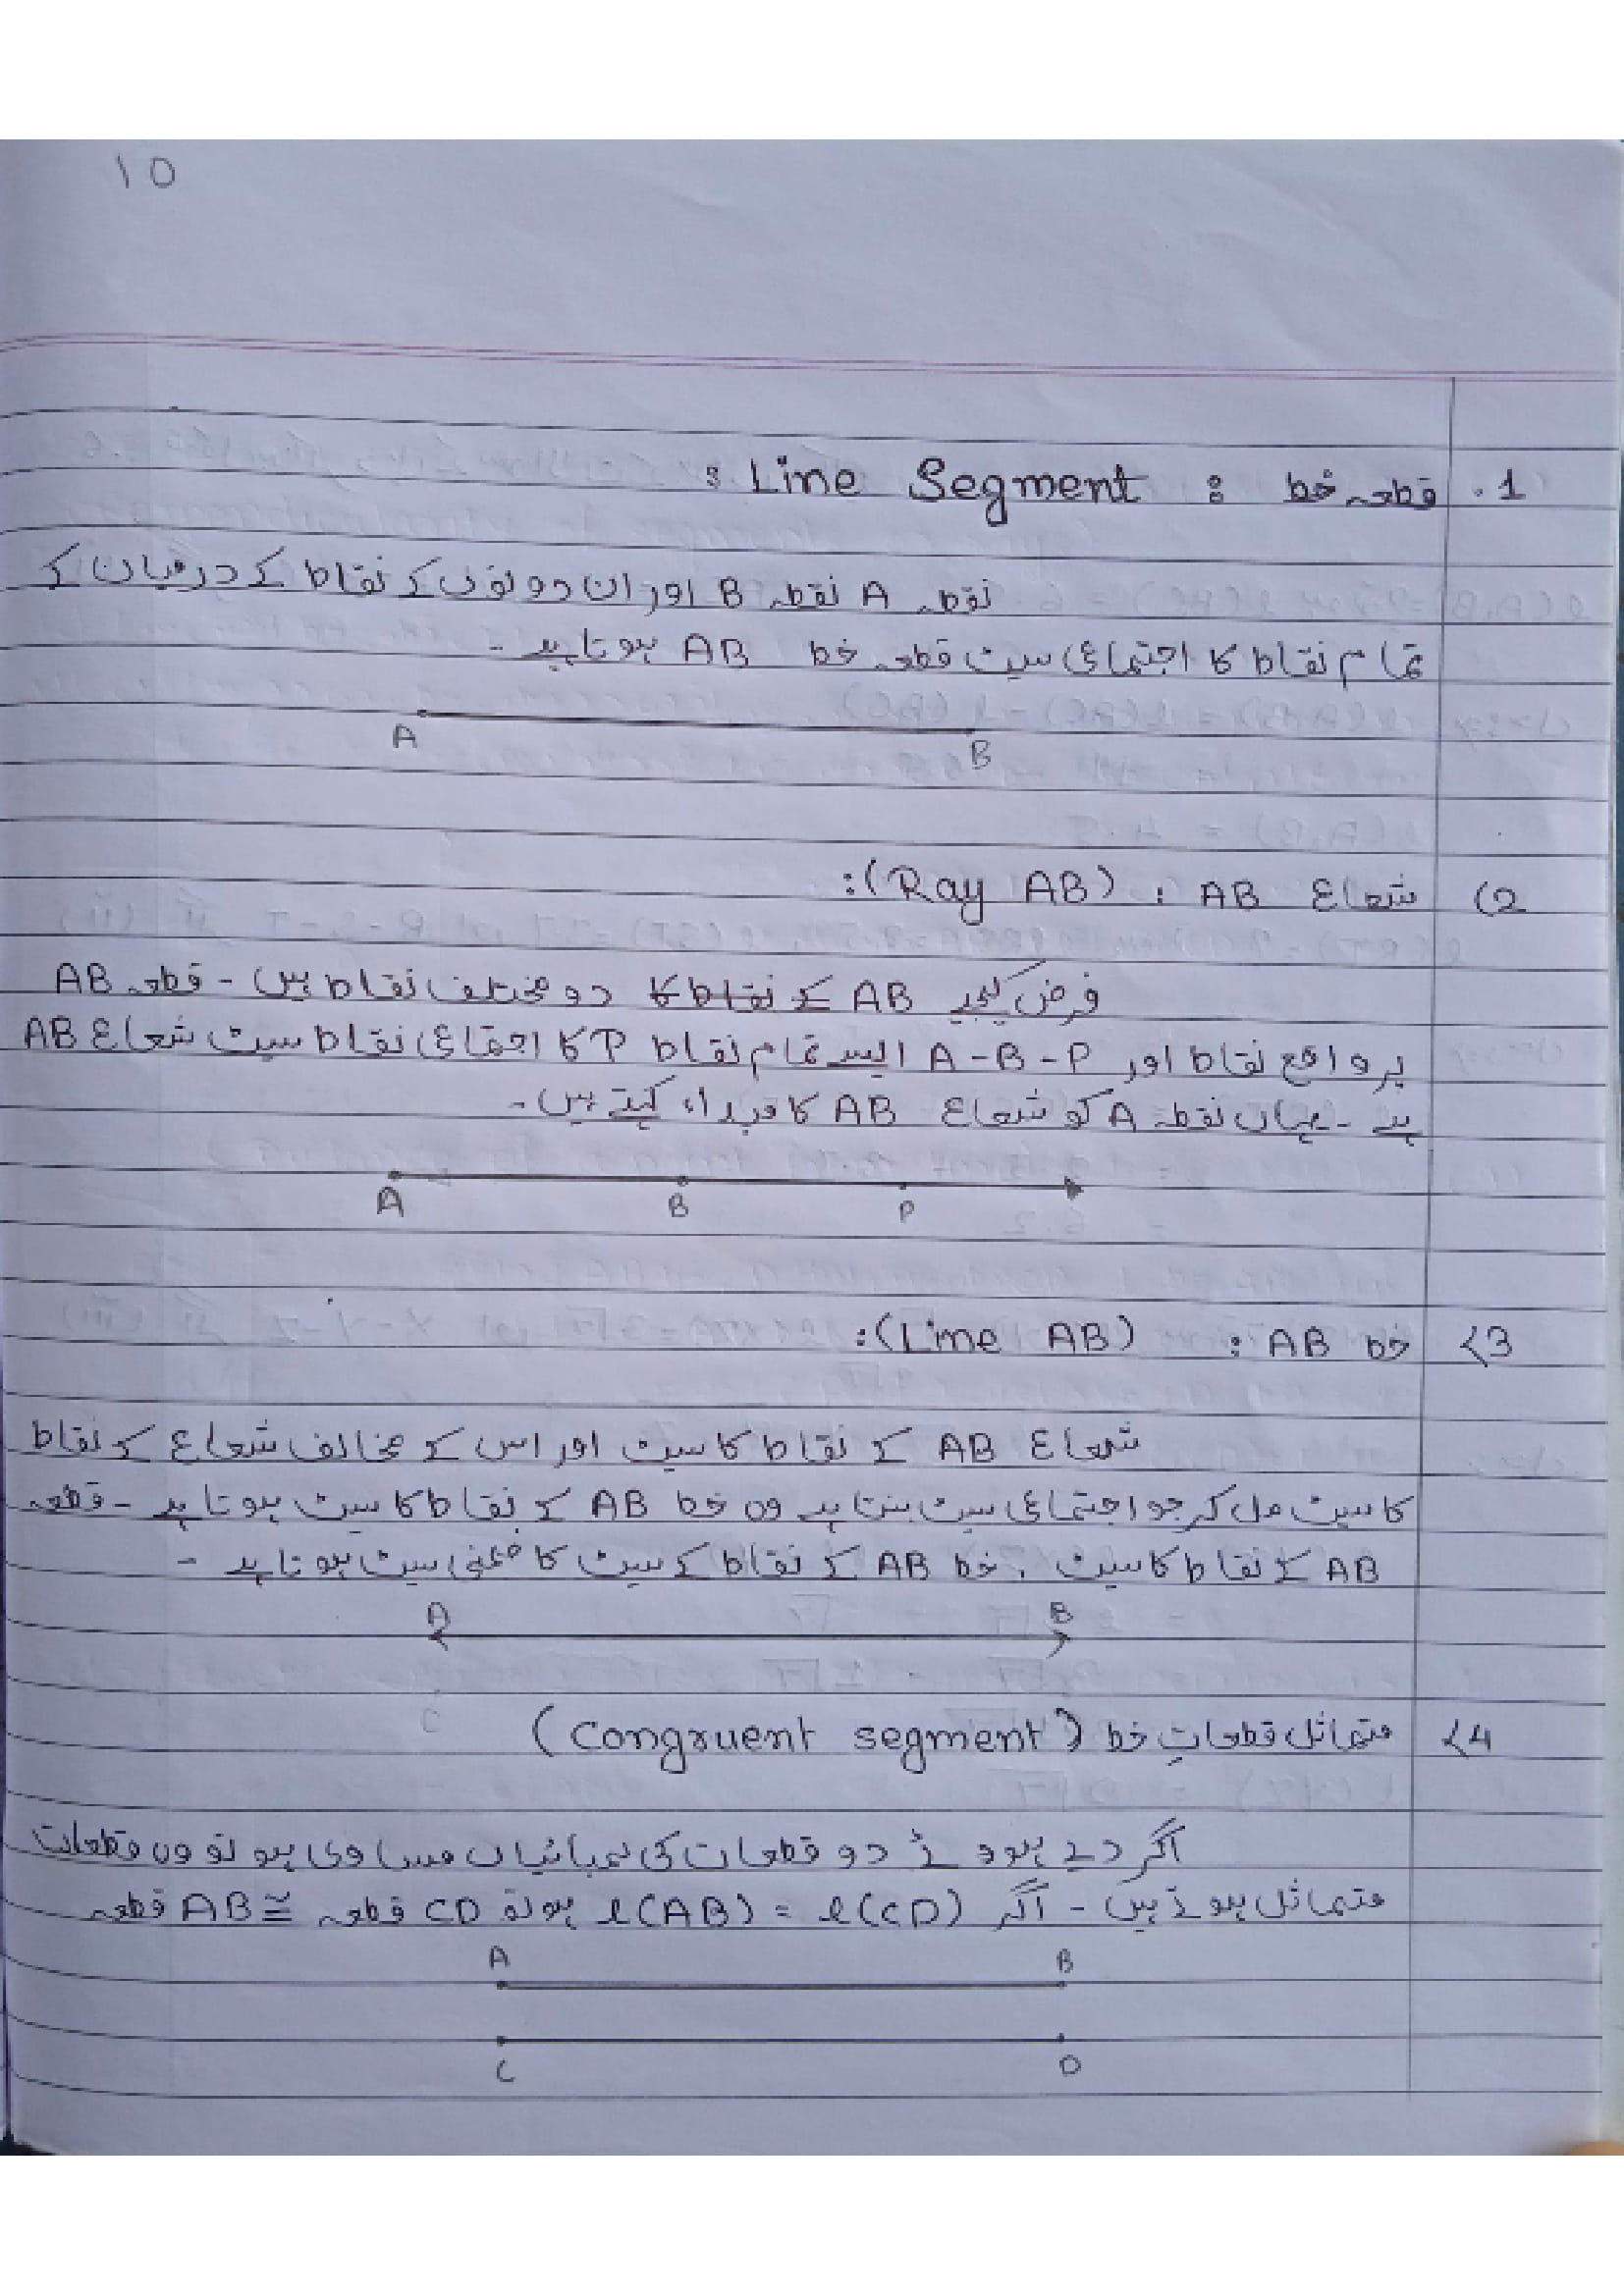 10
1. قطعہ خط : Line Segment :
نقطہ A نقطہ B اور ان دونوں کے نقاط کے درمیان کے
تمام نقاط کا اجتماعی سیٹ قطعہ خط AB ہوتا ہے ۔
A B
2) شعاع AB : (Ray AB):
فرض کیجیے AB کے نقاط کا دو مختلف نقاط ہیں ۔ قطعہ AB
پر واقع نقاط اور A-B-P ایسے تمام نقاط P کا اجتماعی نقاط سیٹ شعاع AB
ہے ۔ یہاں نقطہ A کو شعاع AB کا مبداء کہتے ہیں ۔
A B P
3) خط AB : (Line AB):
شعاع AB کے نقاط کا سیٹ اور اس کے مخالف شعاع کے نقاط
کا سیٹ مل کر جو اجتماعی سیٹ بنتا ہے وہ خط AB کے نقاط کا سیٹ ہوتا ہے ۔ قطعہ
AB کے نقاط کا سیٹ ، خط AB کے نقاط کے سیٹ کا ضمنی سیٹ ہوتا ہے ۔
A B
4) متماثل قطعاتِ خط (Congruent segment)
اگر دیے ہوئے دو قطعات کی لمبائیاں مساوی ہو تو وہ قطعات
متماثل ہوتے ہیں ۔ اگر l(AB) = l(CD) ہو تو قطعہ CD ≅ AB قطعہ
A B
C D